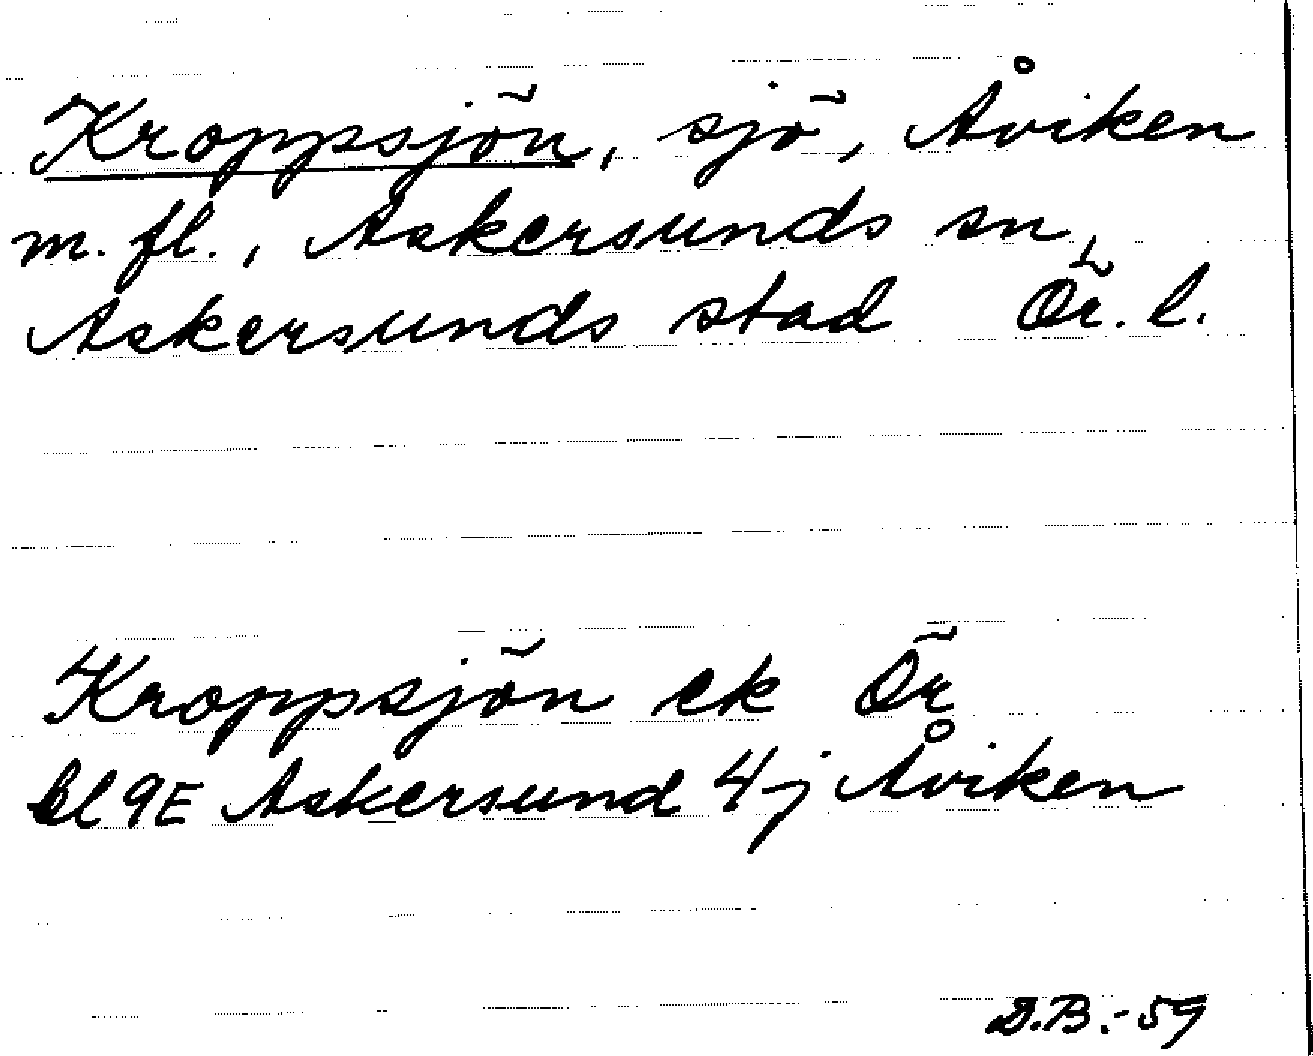 Kroppsjön, sjö, Åviken
m. fl., Askersunds sn,
Askersunds stad Ör. l.
Kroppsjön ek Ör
bl 9E Askersund 4j Åviken
D.B.-59